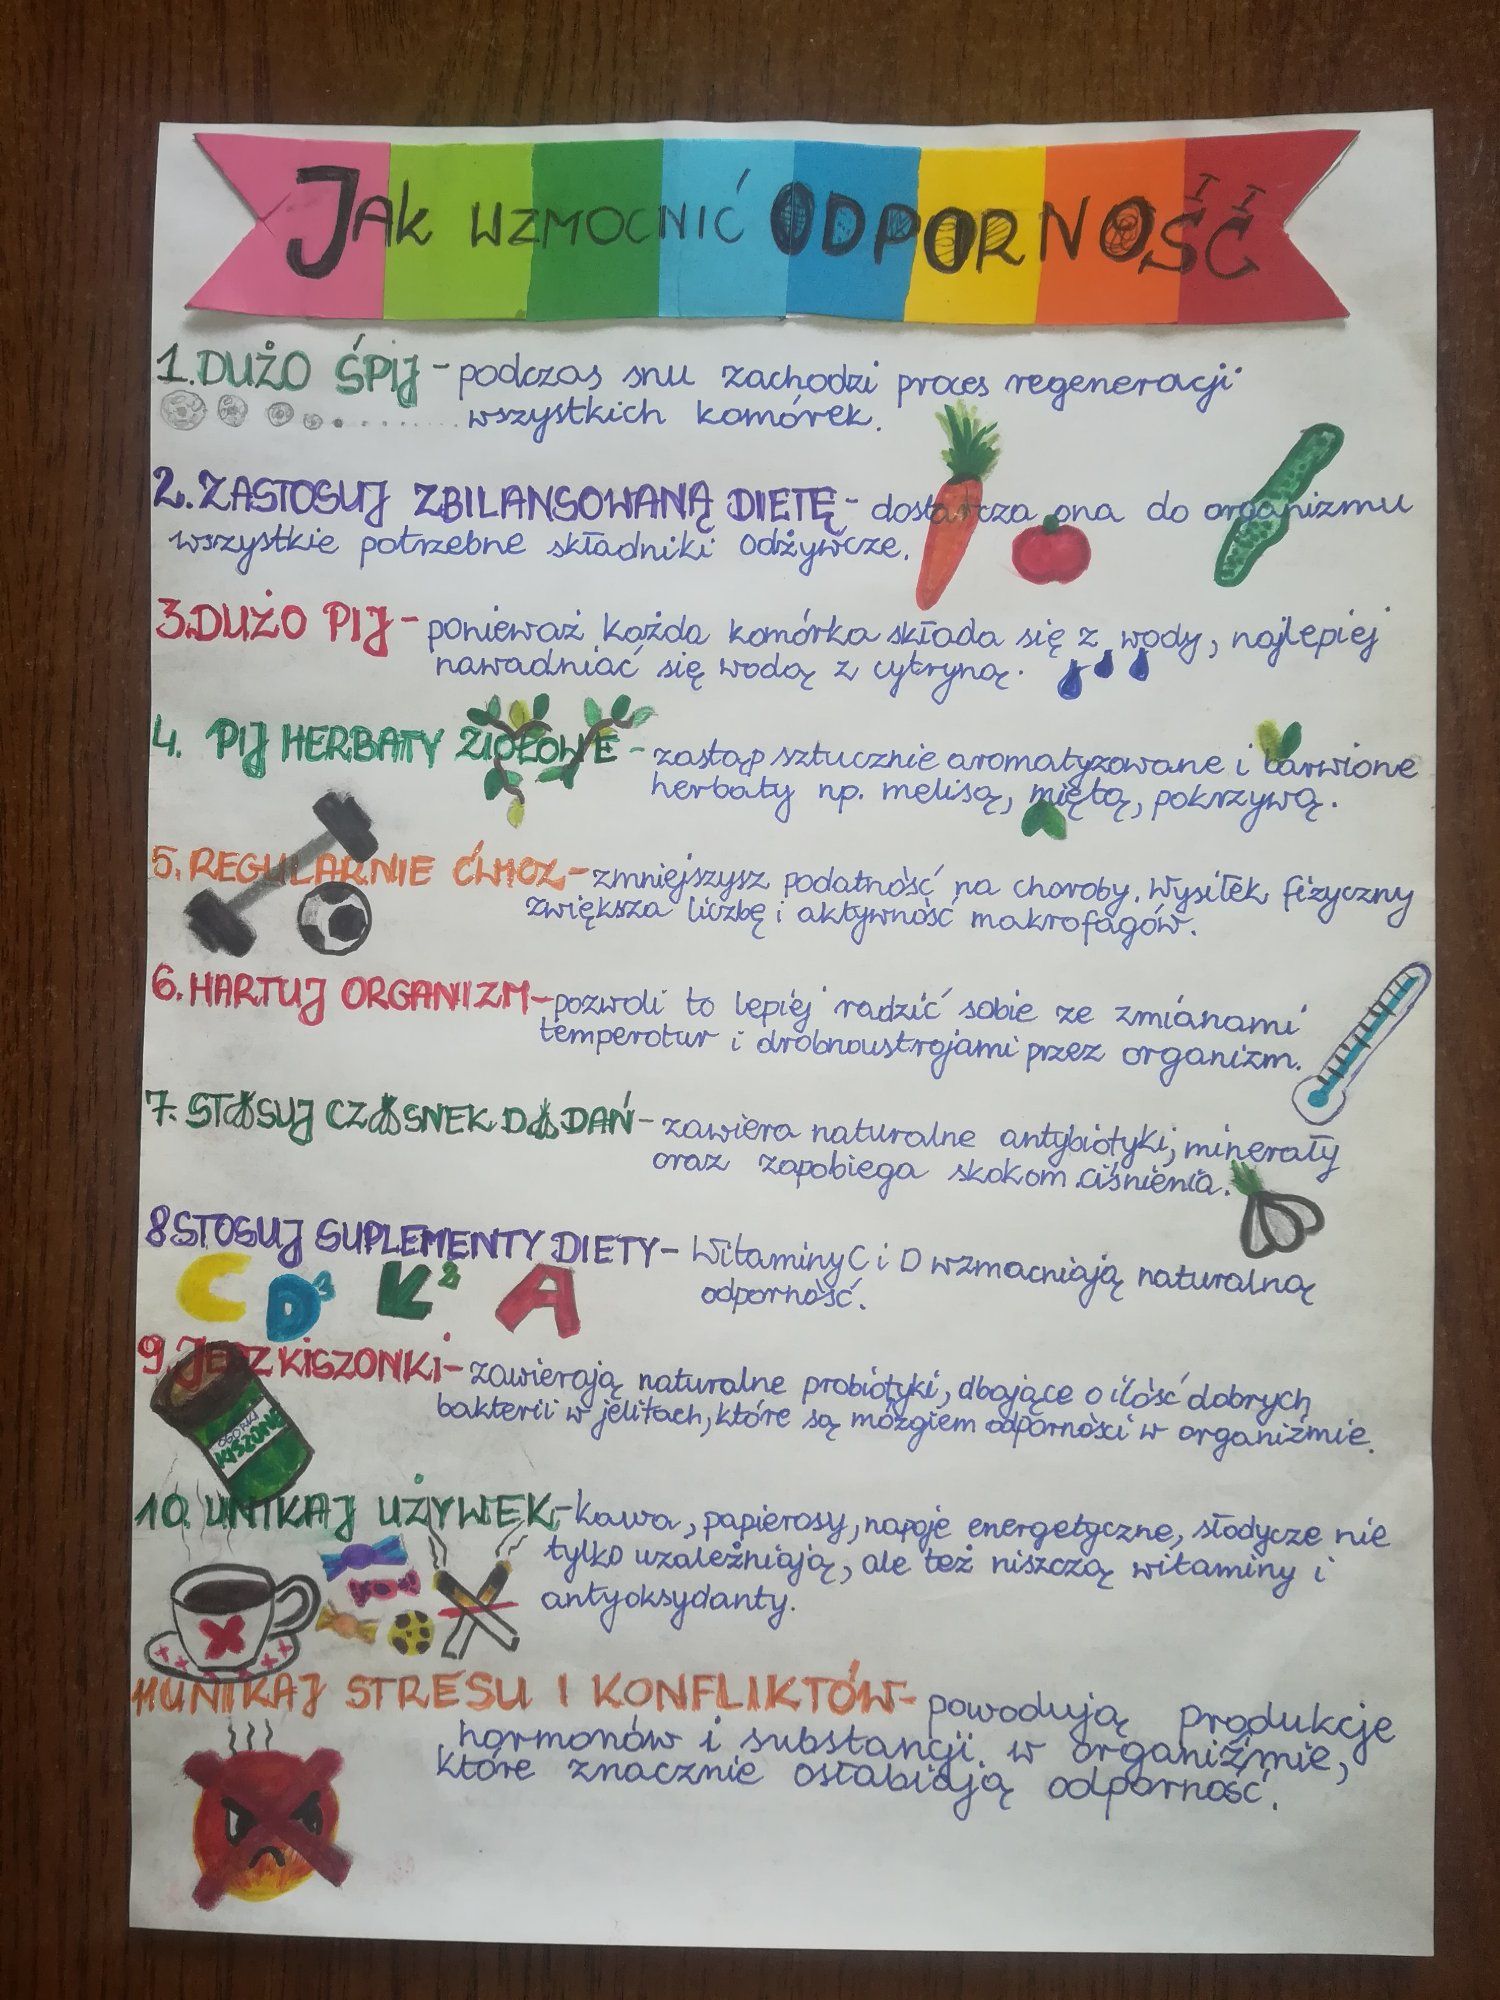 Jak wzmocnić odporność
1. DUŻO ŚPIJ - podczas snu zachodzi proces regeneracji
wszystkich komórek.
2. ZASTOSUJ ZBILANSOWANĄ DIETĘ - dostarcza ona do organizmu
wszystkie potrzebne składniki odżywcze.
3. DUŻO PIJ - ponieważ każda komórka składa się z wody, najlepiej
nawadniać się wodą z cytryną.
4. PIJ HERBATY ZIOŁOWE - zastąp sztucznie aromatyzowane i barwione
herbaty np. melisą, miętą, pokrzywą.
5. REGULARNIE ĆWICZ - zmniejszysz podatność na choroby. Wysiłek fizyczny
zwiększa liczbę i aktywność makrofagów.
6. HARTUJ ORGANIZM - pozwoli to lepiej radzić sobie ze zmianami
temperatur i drobnoustrojami przez organizm.
7. STOSUJ CZOSNEK DO DAŃ - zawiera naturalne antybiotyki, minerały
oraz zapobiega skokom ciśnienia.
8 STOSUJ SUPLEMENTY DIETY - Witaminy C i D wzmacniają naturalną
odporność.
C D3 K2 A
9. JEDZ KISZONKI - zawierają naturalne probiotyki, dbające o ilość dobrych
bakterii w jelitach, które są mózgiem odporności w organiźmie.
OGÓRKI
KISZONE
10. UNIKAJ UŻYWEK - kawa, papierosy, napoje energetyczne, słodycze nie
tylko uzależniają, ale też niszczą witaminy i
antyoksydanty.
11 UNIKAJ STRESU I KONFLIKTÓW - powodują produkcje
hormonów i substancji w organiźmie,
które znacznie osłabiają odporność.